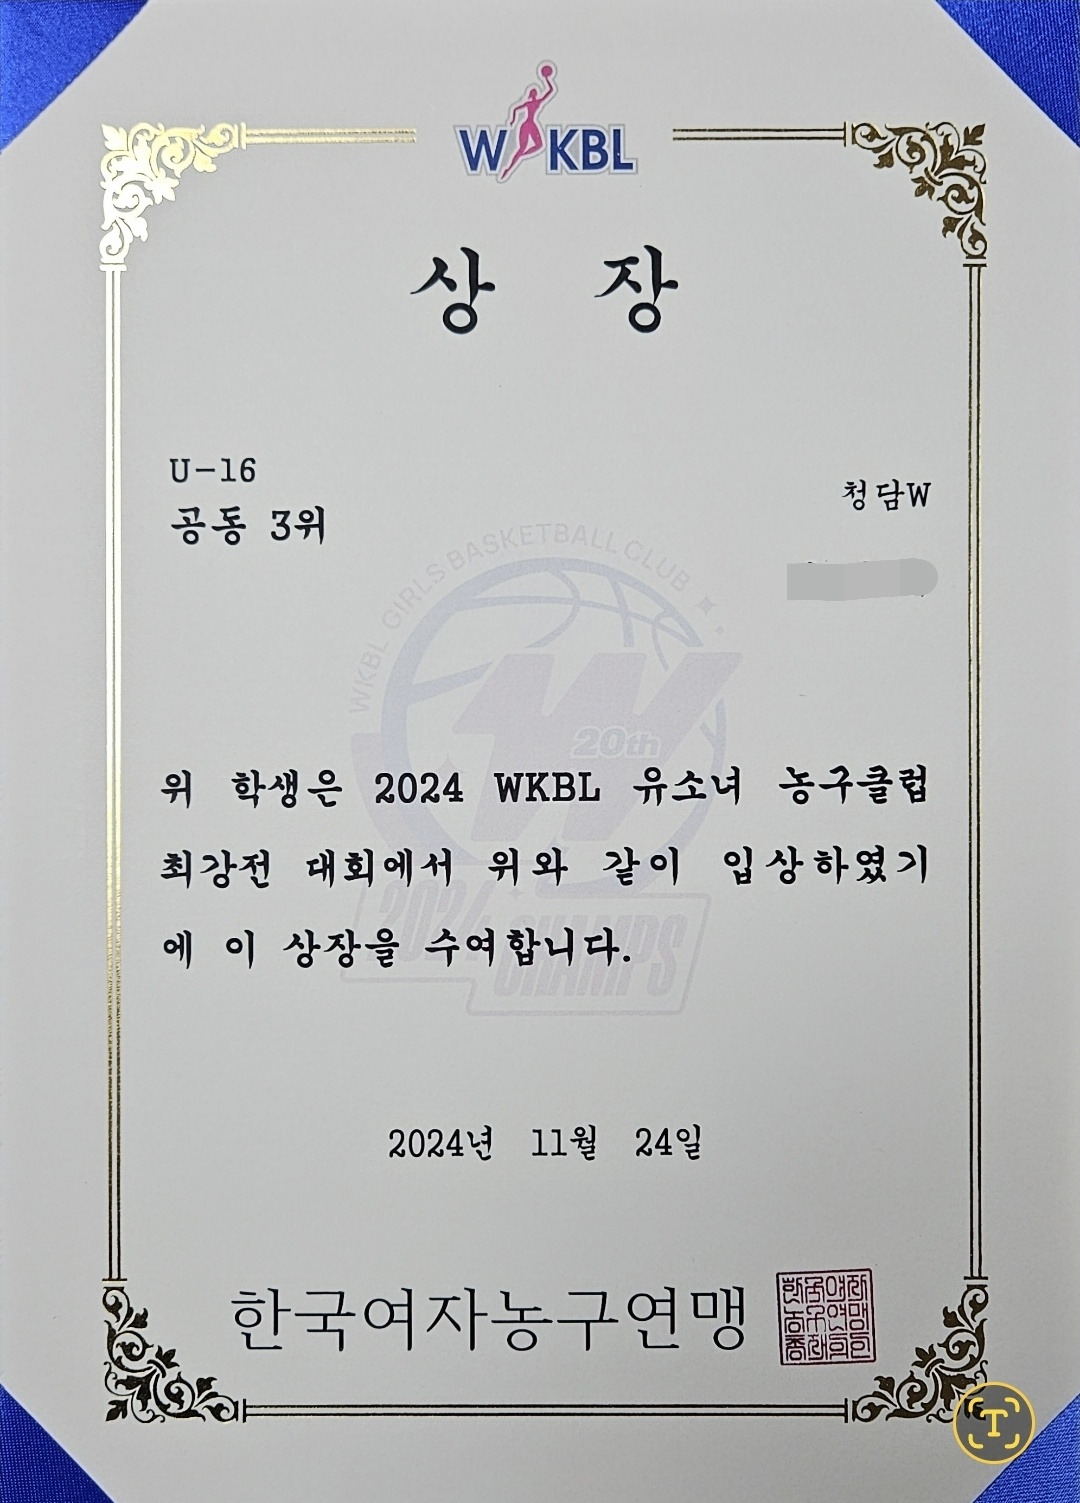 WKBL
상 장
U-16
공동 3위
청담W
WKBL GIRLS BASKETBALL CLUB
W
20th
위 학생은 2024 WKBL 유소녀 농구클럽
최강전 대회에서 위와 같이 입상하였기
에 이 상장을 수여합니다.
2024
CHAMPS
2024년 11월 24일
한국여자농구연맹